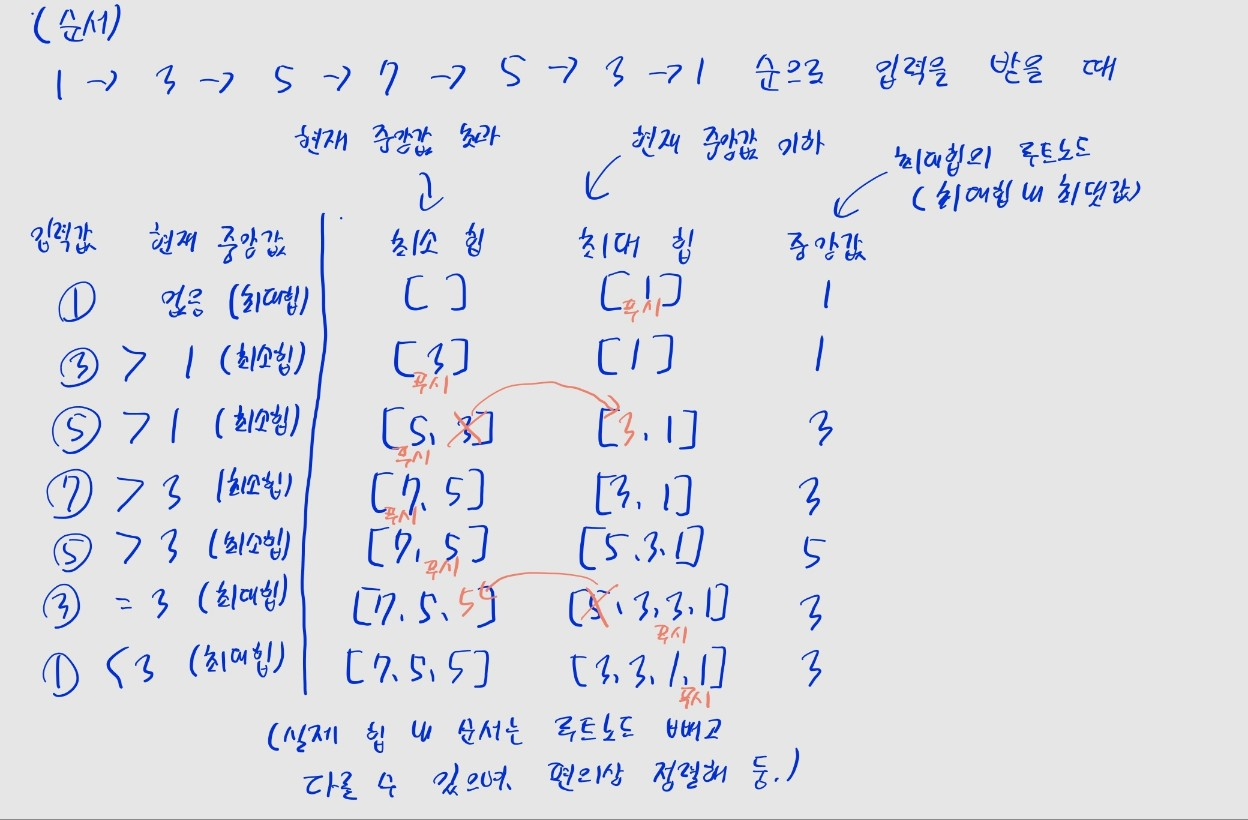 (순서)
1 -> 3 -> 5 -> 7 -> 5 -> 3 -> 1 순으로 입력을 받을 때
현재 중앙값 초과 현재 중앙값 이하
최대힙의 루트노드
(최대힙 내 최댓값)
입력값 현재 중앙값 최소 힙 최대 힙 중앙값
① 없음 (최대힙) [ ] [1] 1
푸시
③ > 1 (최소힙) [3] [1] 1
푸시
⑤ > 1 (최소힙) [5, 3] [3, 1] 3
푸시
⑦ > 3 (최소힙) [7, 5] [3, 1] 3
푸시
⑤ > 3 (최소힙) [7, 5] [5.3.1] 5
푸시
③ = 3 (최대힙) [7, 5, 5] [5, 3, 3, 1] 3
푸시
① < 3 (최대힙) [7, 5, 5] [3, 3, 1, 1] 3
푸시
(실제 힙 내 순서는 루트노드 빼고
다를 수 있으며, 편의상 정렬해 둠.)